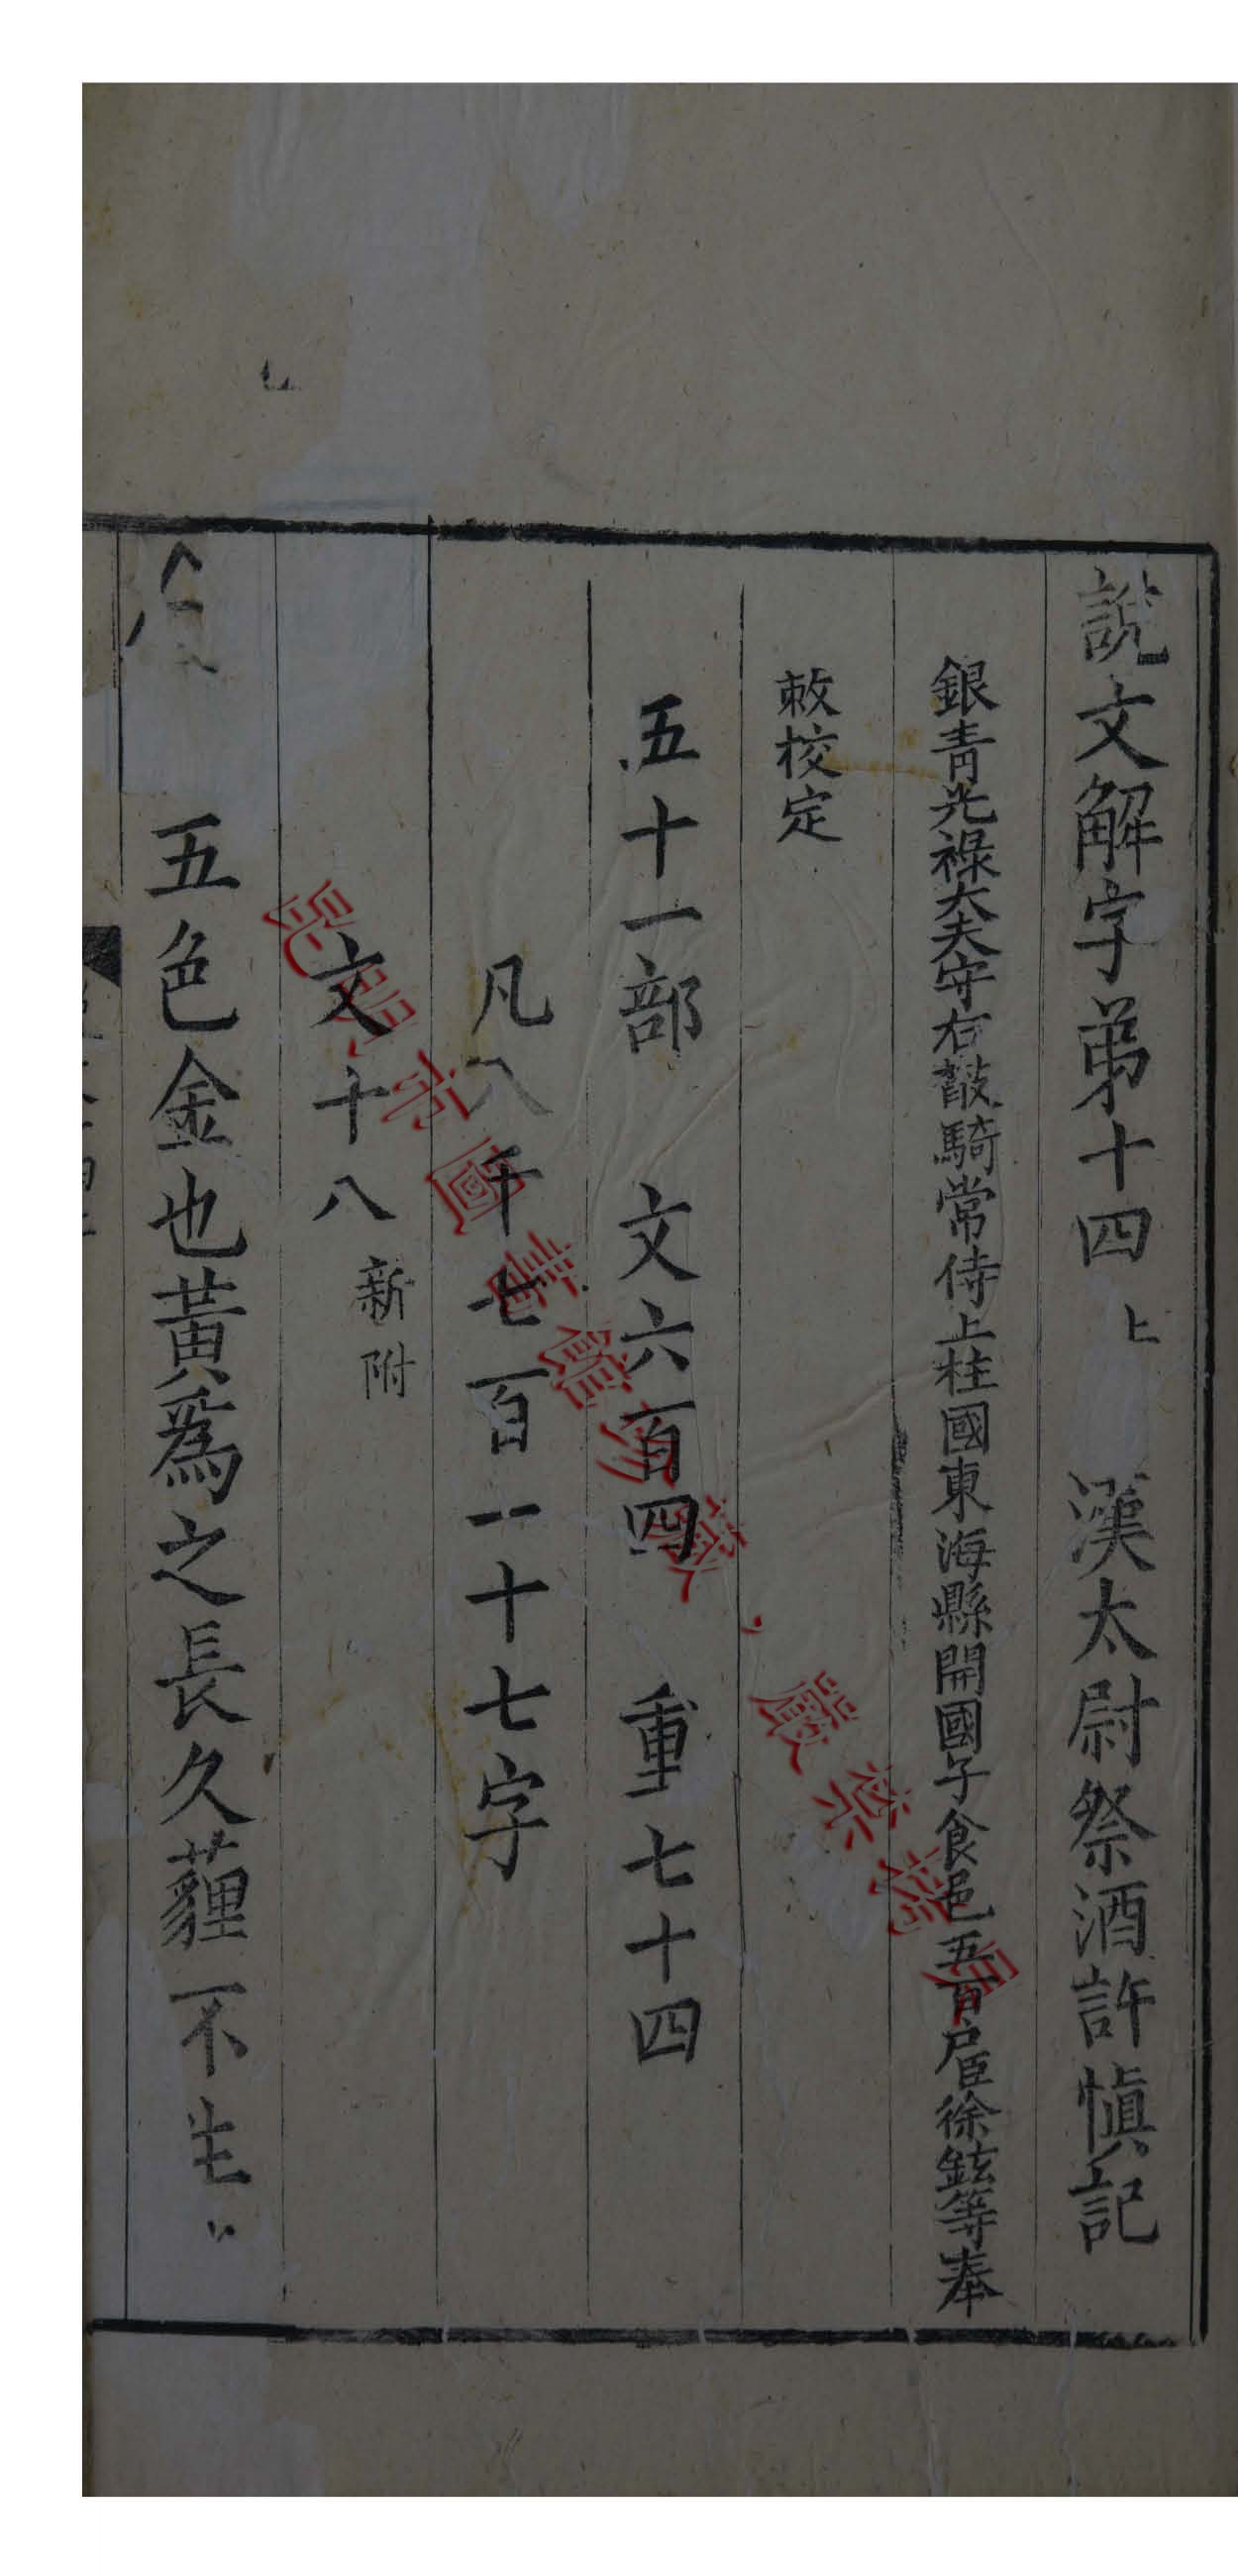 說文解字弟十四上 漢太尉祭酒許愼記
銀青光祿大夫守右散騎常侍上柱國東海縣開國子食邑五百戶臣徐鉉等奉
敕校定
五十一部 文六百四 重七十四
凡八千七百一十七字
文十八新附
五色金也黃爲之長久薶不生
昆明市圖書館所藏，嚴禁攜帶